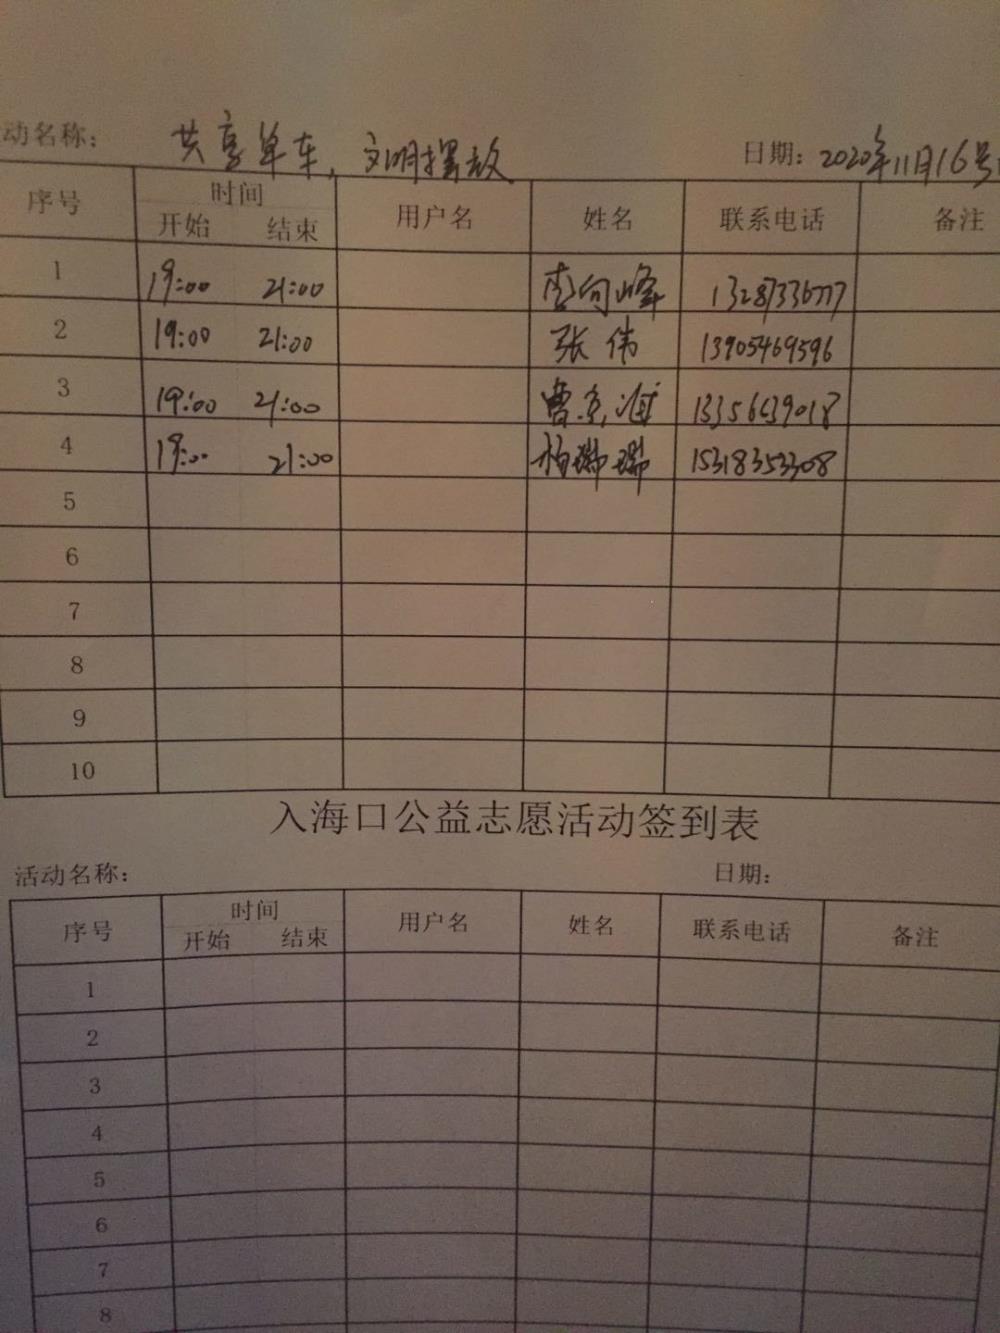 动名称： 共享单车，文明摆放 日期：2020年11月16号
序号 时间 用户名 姓名 联系电话 备注
开始 结束
1 19:00 21:00 李向峰
2 19:00 21:00 张伟 13905469596
3 19:00 21:00 曹 13356639018
4 19:00 21:00 杨瑞瑞 15318353308
5
6
7
8
9
10
入海口公益志愿活动签到表
活动名称： 日期：
序号 时间 用户名 姓名 联系电话 备注
开始 结束
1
2
3
4
5
6
7
8